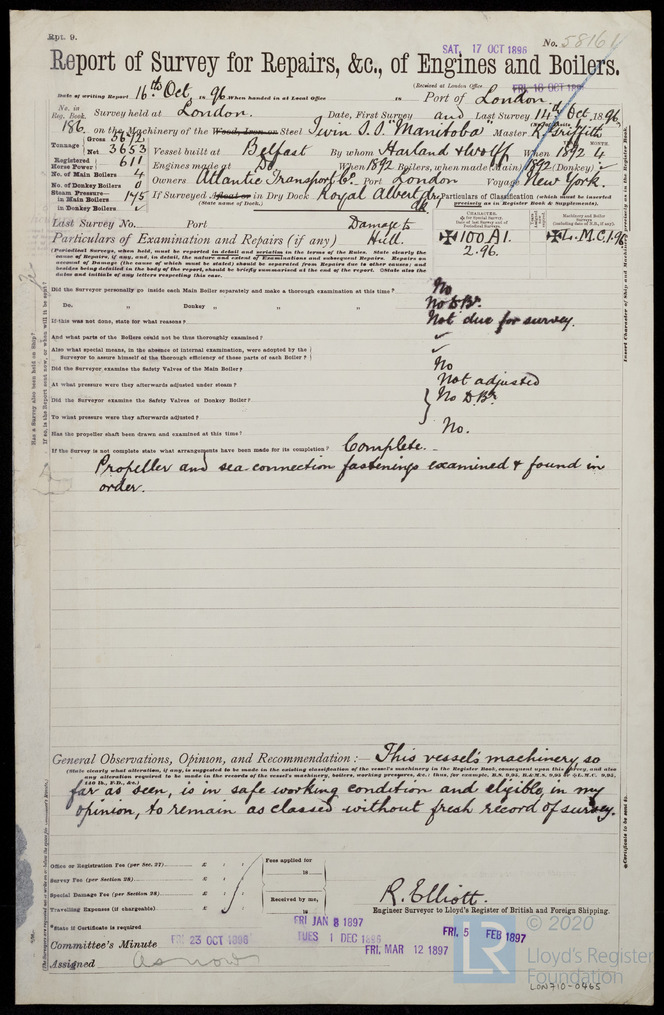 Rpt. 9.
SAT. 17 OCT 1896
No. 58161
Report of Survey for Repairs, &c., of Engines and Boilers.
(Received at London Office FRI. 16 OCT 1896
Date of writing Report 16th Oct 1896 When handed in at Local Office 18 Port of London.
No. in Reg. Book. Survey held at London. Date, First Survey and Last Survey 14th Oct, 1896
186. on the Machinery of the Wood, Iron or Steel Twin S.S. "Manitoba" Master R. Griffith
Tonnage Gross 5672
Net 3653
Vessel built at Belfast By whom Harland & Wolff When 1892 MONTH. 4
Registered Horse Power 611
Engines made at Do When 1892 Boilers, when made (Main) 1892 (Donkey) ✓
No. of Main Boilers 4
Owners Atlantic Transport Co. Port London Voyage New York.
No. of Donkey Boilers 0
Steam Pressure— in Main Boilers 175
in Donkey Boilers ✓
If Surveyed Afloat or in Dry Dock Royal Albert Dr. Dk.
(State name of Dock.)
Particulars of Classification (which must be inserted precisely as in Register Book & Supplements).
Last Survey No. Port Damage to Hull.
Particulars of Examination and Repairs (if any)
✠100A1.
2.96.
✠L.M.C.1.96
(Periodical Surveys, when held, must be reported in detail and seriatim in the terms of the Rules. State clearly the cause of Repairs, if any, and, in detail, the nature and extent of Examinations and subsequent Repairs. Repairs on account of Damage (the cause of which must be stated) should be separated from Repairs due to other causes; and besides being detailed in the body of the report, should be briefly summarised at the end of the report. State also the dates and initials of any letters respecting this case.
Did the Surveyor personally go inside each Main Boiler separately and make a thorough examination at this time? No
Do. " Donkey " " " No D.Br.
If this was not done, state for what reasons? Not due for survey.
And what parts of the Boilers could not be thus thoroughly examined? ✓
Also what special means, in the absence of internal examination, were adopted by the
Surveyor to assure himself of the thorough efficiency of these parts of each Boiler? ✓
Did the Surveyor examine the Safety Valves of the Main Boiler? No
At what pressure were they afterwards adjusted under steam? Not adjusted
Did the Surveyor examine the Safety Valves of Donkey Boiler? No D.Br.
To what pressure were they afterwards adjusted?
Has the propeller shaft been drawn and examined at this time? No.
If the Survey is not complete state what arrangements have been made for its completion? Complete.
Propeller and sea-connection fastenings examined & found in
order.
General Observations, Opinion, and Recommendation :— This vessel's machinery, so
(State clearly what alteration, if any, is suggested to be made in the existing classification of the vessel's machinery in the Register Book, consequent upon this survey, and also
any alteration required to be made in the records of the vessel's machinery, boilers, working pressures, &c.: thus, for example, B.S. 9,95, B.&M.S. 9,95 or ✠L.M.C. 9,95,
140 lb., F.D., &c.)
far as seen, is in safe working condition and eligible, in my
opinion, to remain as classed without fresh record of survey.
Office or Registration Fee (per Sec. 27) £ : :
Survey Fee (per Section 28) £ : :
Special Damage Fee (per Section 28) £ : :
Travelling Expenses (if chargeable) £ : :
Fees applied for
18
Received by me,
18
R. Elliott.
Engineer Surveyor to Lloyd's Register of British and Foreign Shipping.
*State if Certificate is required
FRI JAN 8 1897
Committee's Minute FRI 23 OCT 1896 TUES 1 DEC 1896 FRI. 5 FEB 1897
FRI. MAR 12 1897
Assigned as now
LR
© 2020
Lloyd's Register
Foundation
LON710-0465